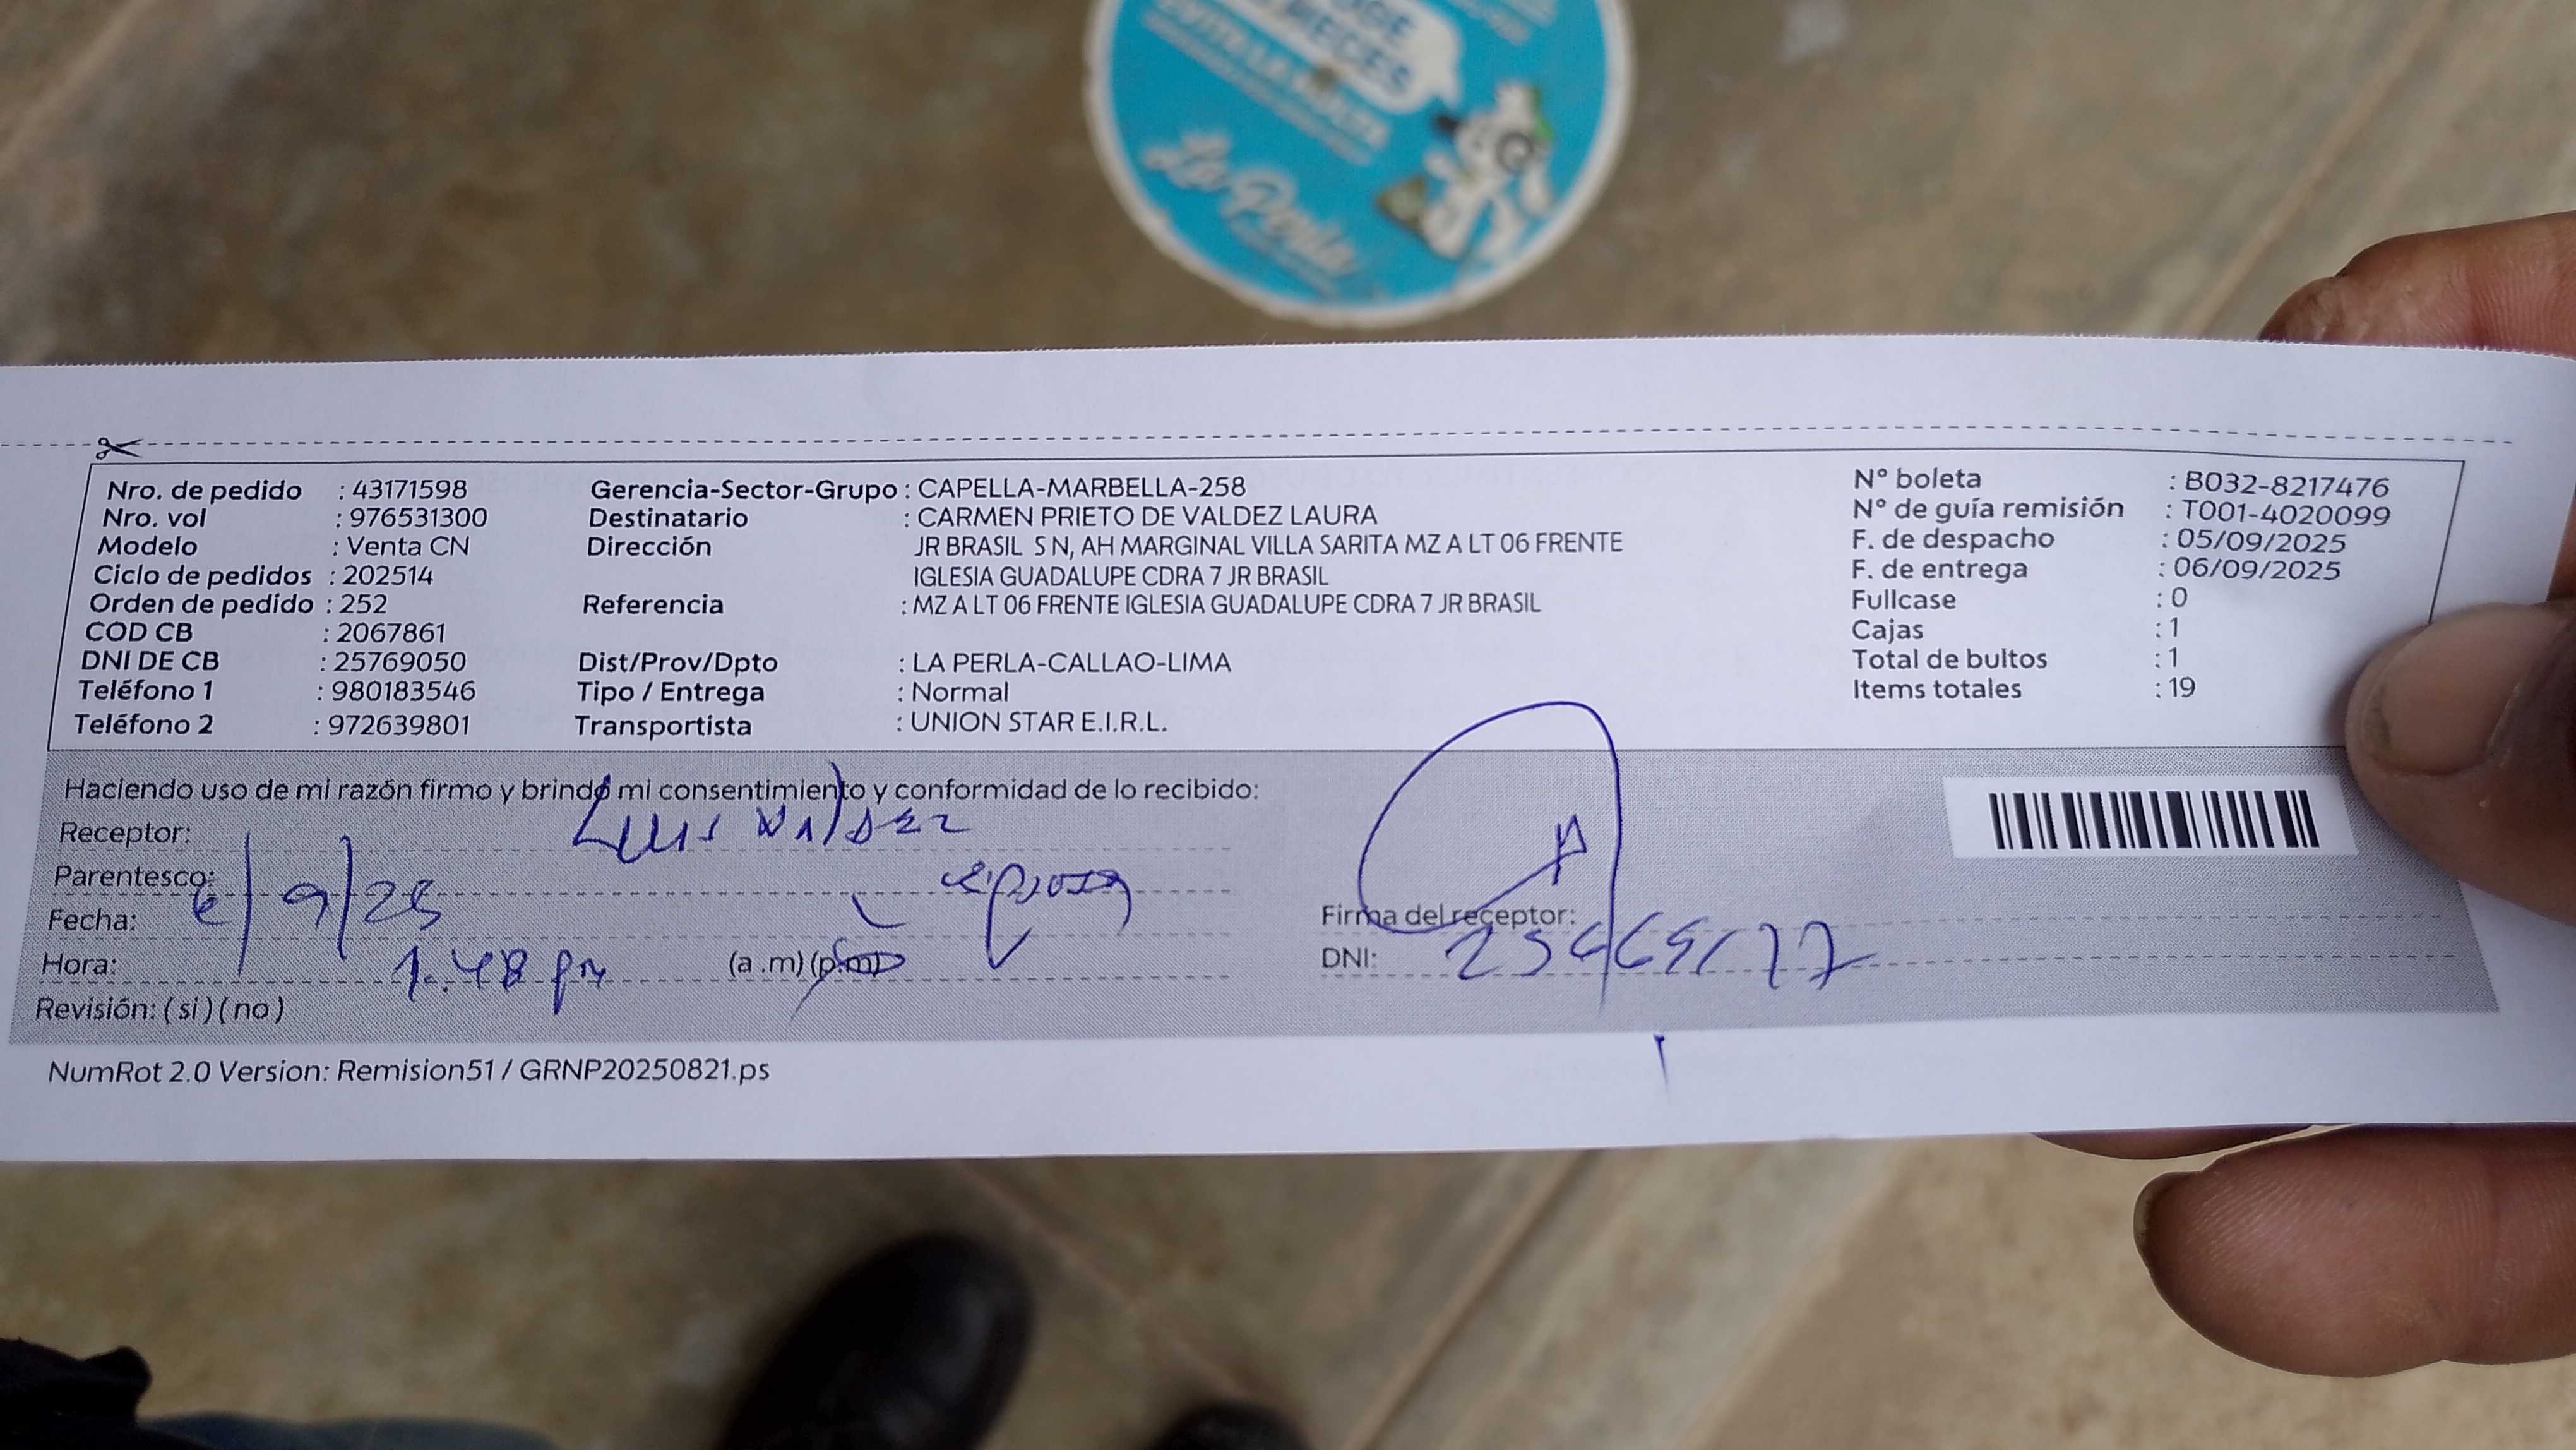 La Perla
Nro. de pedido : 43171598
Nro. vol : 976531300
Modelo : Venta CN
Ciclo de pedidos : 202514
Orden de pedido : 252
COD CB : 2067861
DNI DE CB : 25769050
Teléfono 1 : 980183546
Teléfono 2 : 972639801
Gerencia-Sector-Grupo : CAPELLA-MARBELLA-258
Destinatario : CARMEN PRIETO DE VALDEZ LAURA
Dirección JR BRASIL S N, AH MARGINAL VILLA SARITA MZ A LT 06 FRENTE
IGLESIA GUADALUPE CDRA 7 JR BRASIL
Referencia : MZ A LT 06 FRENTE IGLESIA GUADALUPE CDRA 7 JR BRASIL
Dist/Prov/Dpto : LA PERLA-CALLAO-LIMA
Tipo / Entrega : Normal
Transportista : UNION STAR E.I.R.L.
Nº boleta : B032-8217476
Nº de guía remisión : T001-4020099
F. de despacho : 05/09/2025
F. de entrega : 06/09/2025
Fullcase : 0
Cajas : 1
Total de bultos : 1
Items totales : 19
Haciendo uso de mi razón firmo y brindo mi consentimiento y conformidad de lo recibido:
Receptor: Luis Valdez
Parentesco:
Fecha: 6/9/25
Hora: 1.48 pm (a .m) (p.m)
Revisión: ( si ) ( no )
Firma del receptor:
DNI:
NumRot 2.0 Version: Remision51 / GRNP20250821.ps